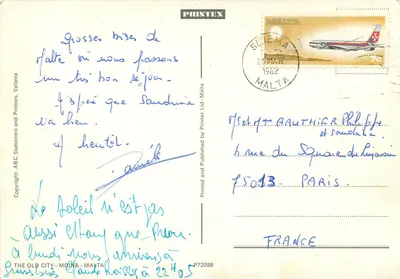 PRINTEX
Grosses bises de
Malte où nous passons
un très bon séjour.
J'espère que Sandrine
va bien.
A bientôt.
Le soleil n'est pas
aussi chaud que
à lundi nous arrivons à
22H05
Copyright: ABC Stationers and Printers, Valletta
Printed and Published by Printex Ltd-Malta
THE OLD CITY - MDINA - MALTA
P72088
MALTA
SLIEMA
1982
MALTA
M et Mme GAUTHIER Philippe
et Sandrine
4 rue du Square du
75013 PARIS
FRANCE